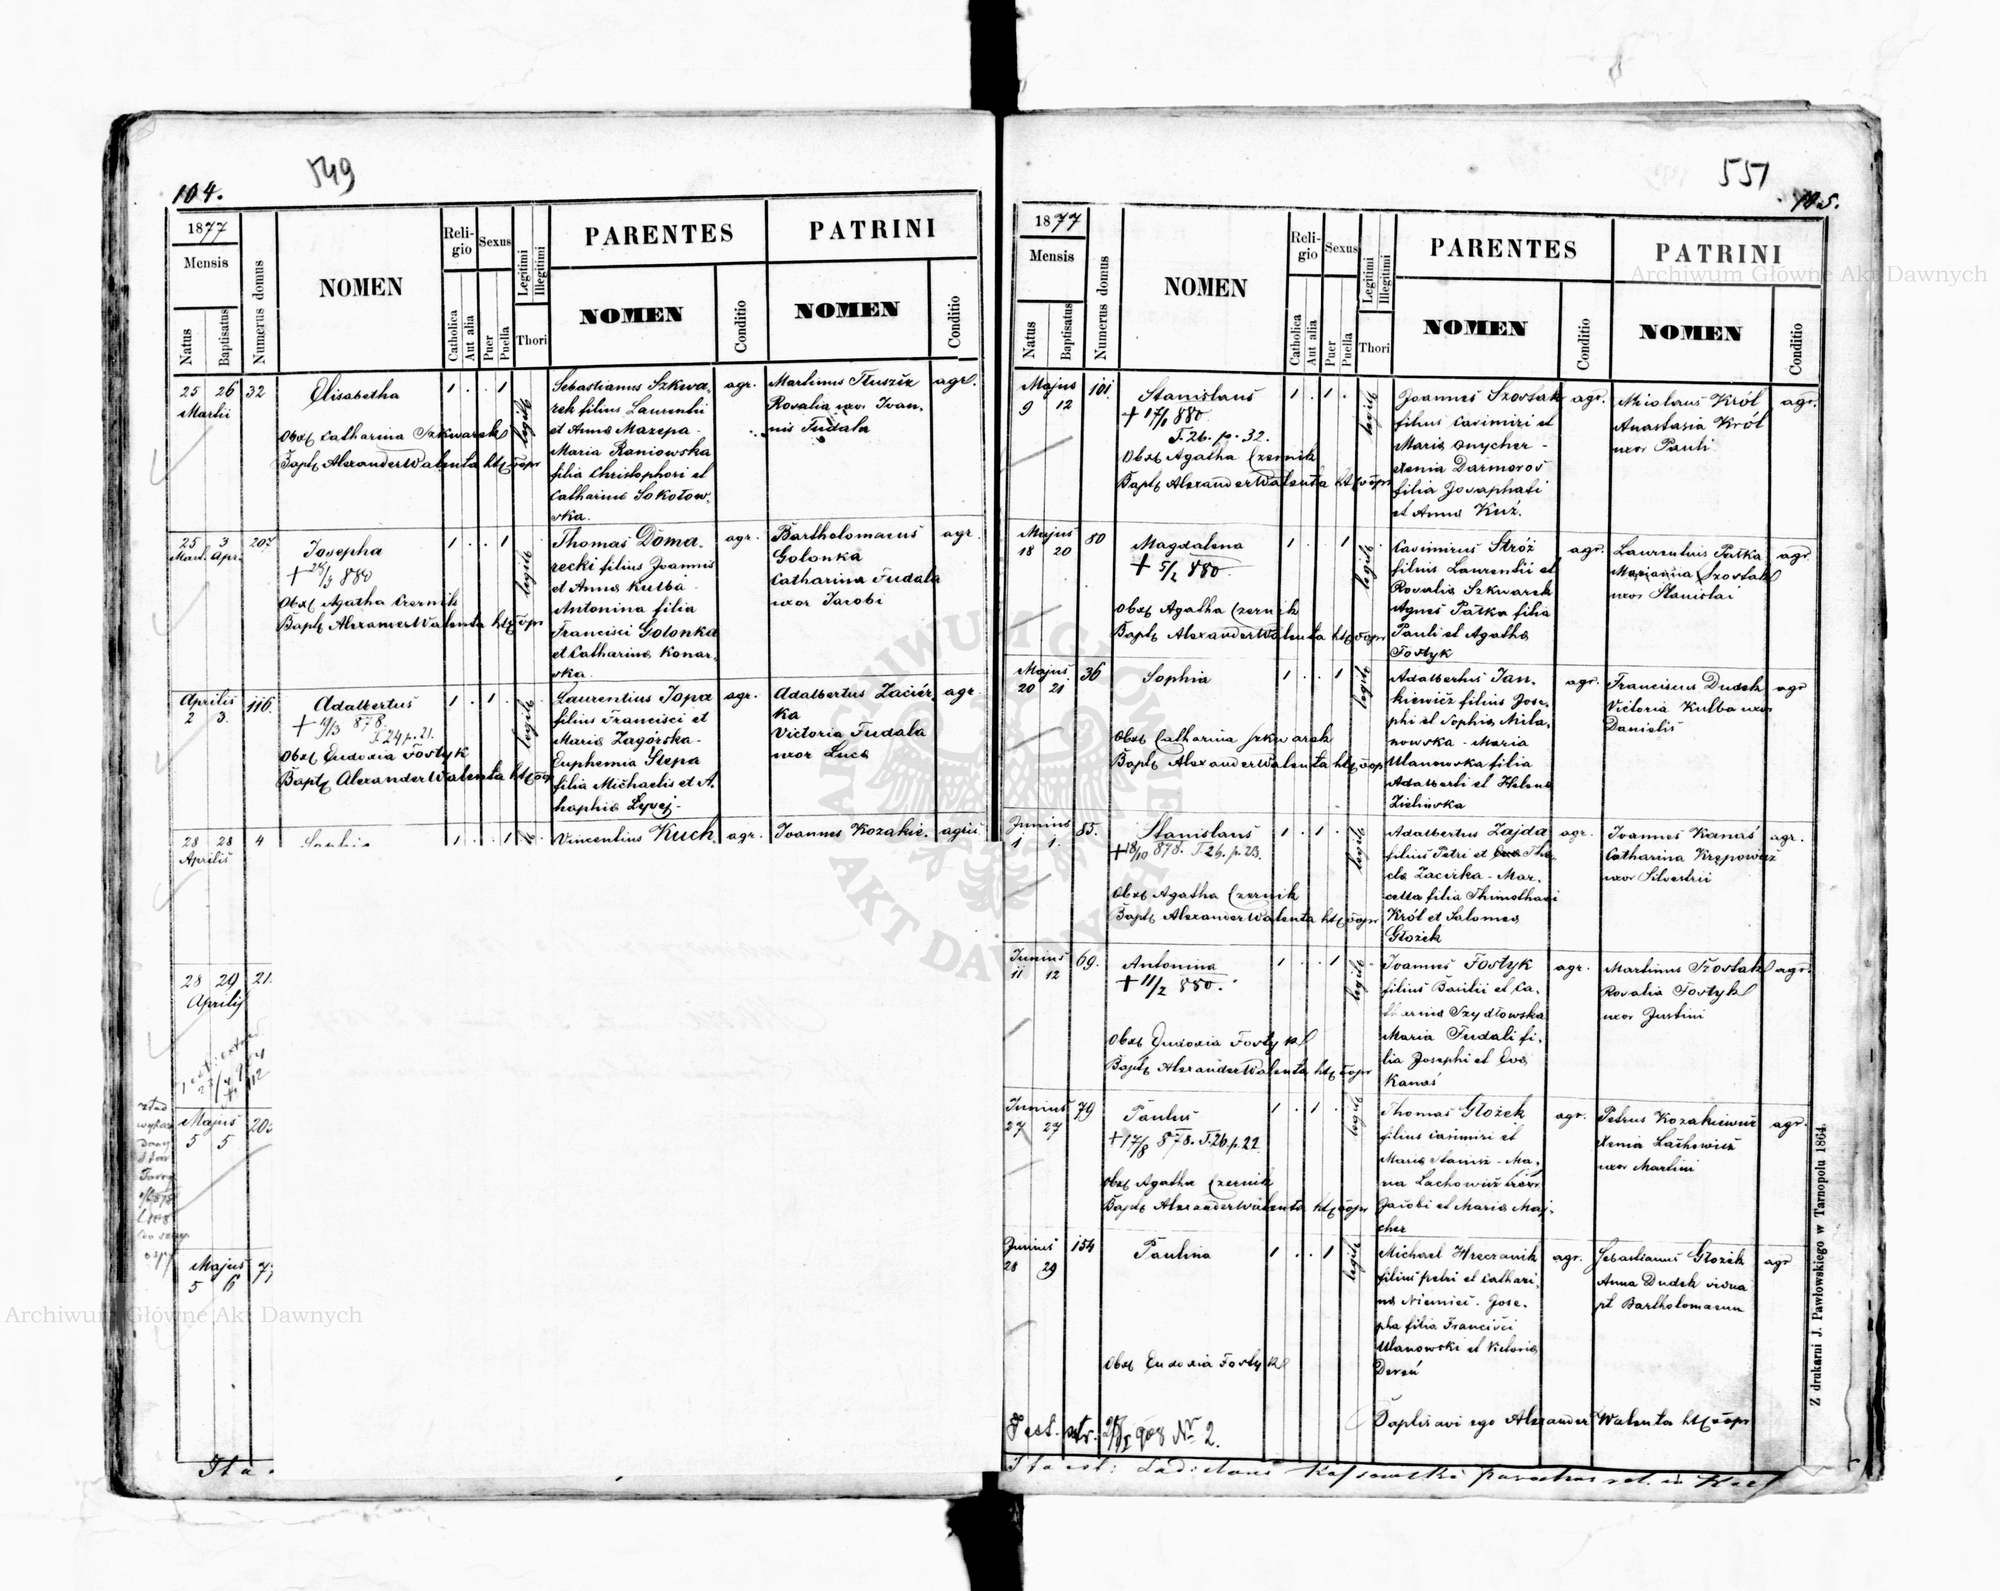 104.
549
1877
Mensis
Natus
Baptisatus
Numerus domus
NOMEN
Religio
Catholica
Aut alia
Sexus
Puer
Puella
Legitimi
Illegitimi
Thori
PARENTES
NOMEN
Conditio
PATRINI
NOMEN
Conditio
25 26 32
Martii
Elisabetha
Obst Catharina Szkwarek
Bapt Alexander Walenta
legit
Sebastianus Szkwa-
rek filius Laurentii
et Anna Mazepa
Maria Raniowska
filia Christophori et
Catharina Sokołow-
ska.
agr.
Martinus Tłuszik
Rosalia uxor Ioan-
nis Fudala
agr.
25 3 207
Mart. Apr.
Josepha
Obst Agatha Czernik
Bapt Alexander Walenta
legit
Thomas Doma-
recki filius Joannis
et Anna Kulba
Antonina filia
Francisci Golonka
et Catharina Konar-
ska.
agr.
Bartholomaeus
Golonka
Catharina Fudala
uxor Jacobi
agr.
Aprilis
2 3. 116.
Adalbertus
+ 878.
T. 24 p. 21.
Obst Eudoxia Fostyk
Bapt Alexander Walenta
legit
Laurentius Jopa
filius Francisci et
Maria Zagórska -
Euphemia Stepa
filia Michaelis et A-
haphia
agr.
Adalbertus Zacier-
ka
Victoria Fudala
uxor Luca
agr.
28 28 4
Aprilis
Sophia
Vincentius Kuch
agr.
Joannes Kozakie-
28 29 21
Aprilis
Majus 20
5 5
Majus
5 6
Ita
551
1877
Mensis
Natus
Baptisatus
Numerus domus
NOMEN
Religio
Catholica
Aut alia
Sexus
Puer
Puella
Legitimi
Illegitimi
Thori
PARENTES
NOMEN
Conditio
PATRINI
NOMEN
Conditio
Majus 101.
9 12
Stanislaus
+ 17/1 880
T. 26. p. 32.
Obst Agatha Czernik
Bapt Alexander Walenta
legit
Joannes Szostak
filius Casimiri et
Maria Onycher -
Xenia Darmoros
filia Josaphati
et Anna Kuź.
agr.
Nicolaus Król
Anastasia Król
uxor Pauli
agr.
Majus 80
18 20
Magdalena
+ 5/2 880
Obst Agatha Czernik
Bapt Alexander Walenta
legit
Casimirus Stróż
filius Laurentii et
Rosalia Szkwarek
Agnes Pałka filia
Pauli et Agatha
Fostyk
agr.
Laurentius Pałka
Marianna Szostak
uxor Stanislai
agr.
Majus 36
20 21
Sophia
Obst Catharina Szkwarek
Bapt Alexander Walenta
legit
Adalbertus Jan-
kiewicz filius Jose-
phi et Sophia Mila-
nowska - Maria
Ulanowska filia
Adalberti et Helena
Zielinska
agr.
Franciscus Dudek
Victoria Kulba uxor
Danielis
agr
Junius 85.
1 1.
Stanislaus
+ 18/10 878. T. 26. p. 23.
Obst Agatha Czernik
Bapt Alexander Walenta
legit
Adalbertus Zajda
filius Petri et The-
cla Zacirka - Mar-
cella filia Thimothaei
Król et Salomea
Głożek
agr.
Joannes Kanas
Catharina Krępowicz
uxor Silvestrii
agr.
Junius 69.
11 12
Antonina
+ 11/2 880.
Obst Eudoxia Fostyk
Bapt Alexander Walenta
legit
Joannes Fostyk
filius Basilii et Ca-
tharina Szydłowska
Maria Fudali fi-
lia Josephi et Eva
Kanas
agr.
Martinus Szostak
Rosalia Fostyk
uxor Justini
agr.
Junius 79
27 27
Paulus
+ 17/8 878. T. 26. p. 22
Obst Agatha Czernik
Bapt Alexander Walenta
legit
Thomas Głożek
filius Casimiri et
Maria Stanisz - Ma-
ria Lachowicz
Jacobi et Maria Maj-
cher
agr.
Petrus Kozakiewicz
Xenia Lachowicz
uxor Martini
agr.
Junius 154
28 29
Paulina
Obst Eudoxia Fostyk
legit
Michael Hreczanik
filius Petri et Cathari-
na Niemiec. Jose-
pha filia Francisci
Ulanowski et Victoria
Dereń
agr.
Sebastianus Głożek
Anna Dudek vidua
pt Bartholomaeum
agr
Baptisavi ego Alexander Walenta
908 Nr 2.
Ita est: Ladislaus
Z drukarni J. Pawłowskiego w Tarnopolu 1864.
Archiwum Główne Akt Dawnych
Archiwum Główne Akt Dawnych
ARCHIWUM GŁÓWNE
AKT DAWNYCH